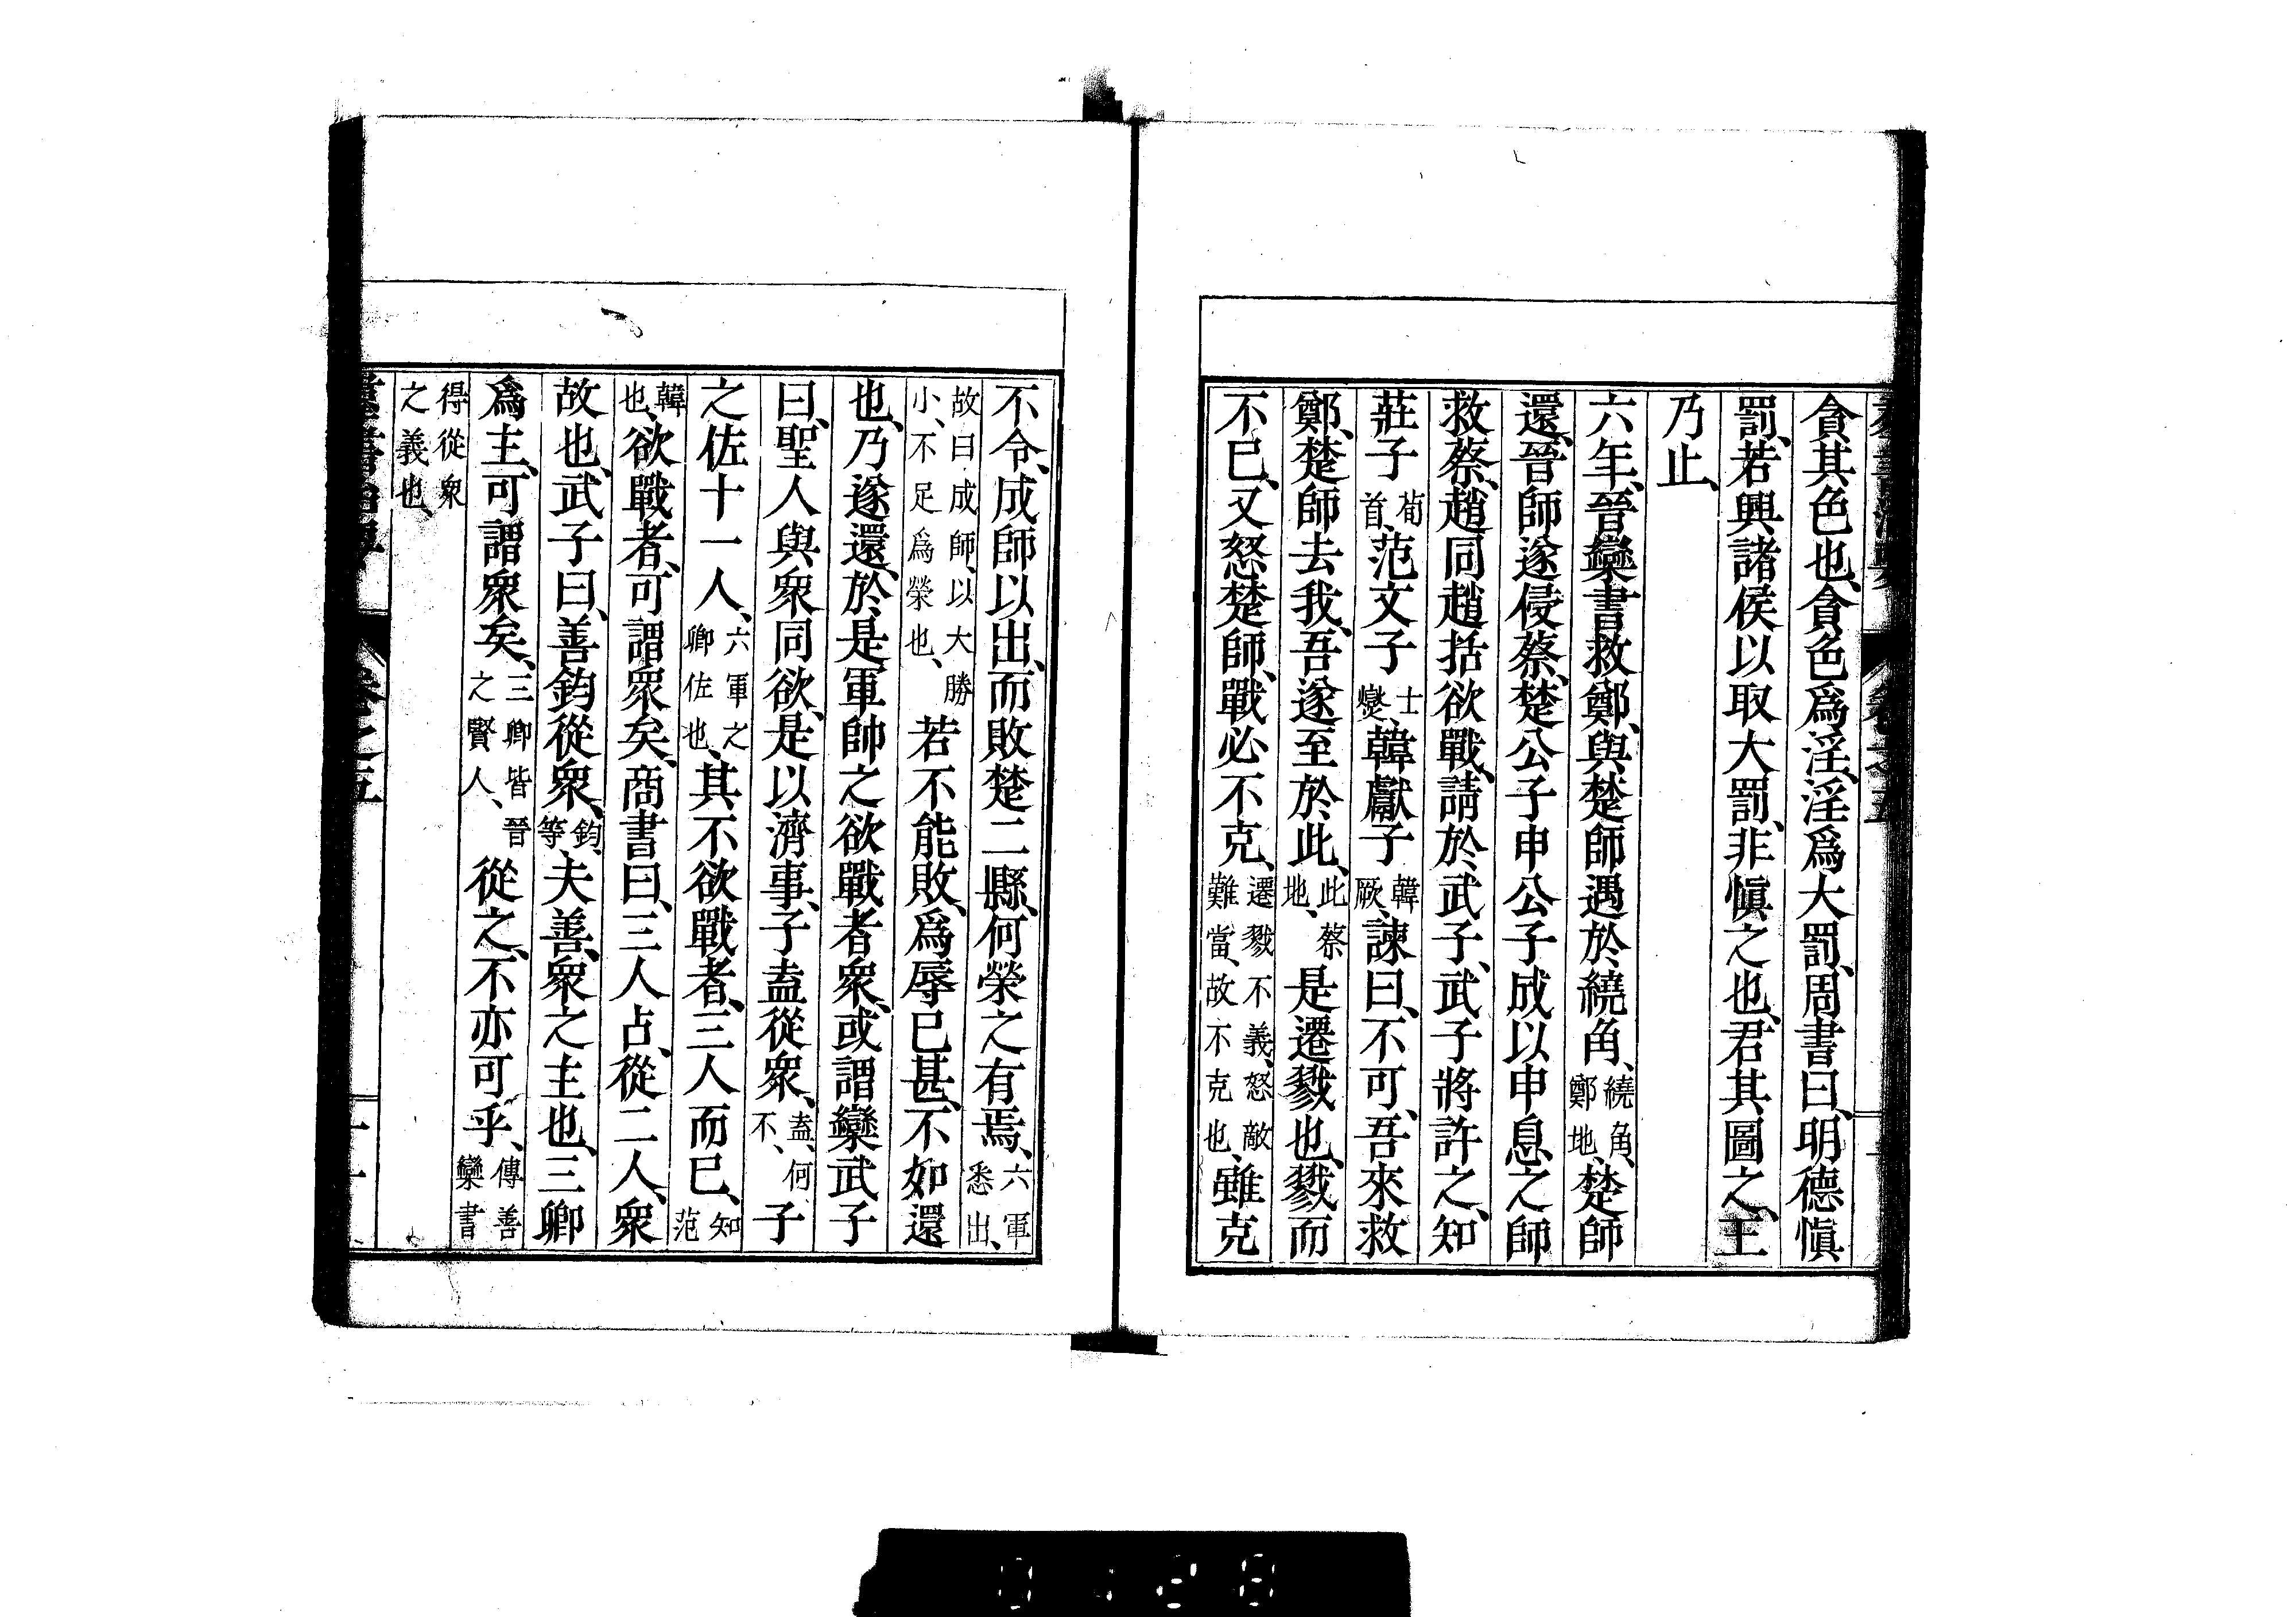 貪其色也、貪色爲淫、淫爲大罰、周書曰、明德愼
罰、若興諸侯以取大罰、非愼之也、君其圖之、王
乃止、
六年、晉欒書救鄭、與楚師遇於繞角、繞角、鄭地、楚師
還、晉師遂侵蔡、楚公子申公子成以申息之師
救蔡、趙同趙括欲戰、請於武子、武子將許之、知
莊子荀首、范文子士燮、韓獻子韓厥、諫曰、不可、吾來救
鄭、楚師去我、吾遂至於此、此蔡地、是遷戮也、戮而
不已、又怒楚師、戰必不克、遷戮不義、怒敵難當、故不克也、雖克
不令、成師以出、而敗楚二縣、何榮之有焉、六軍悉出、
故曰成師、以大勝小、不足爲榮也、若不能敗、爲辱已甚、不如還
也、乃遂還、於是軍帥之欲戰者衆、或謂欒武子
曰、聖人與衆同欲、是以濟事、子盍從衆、盍、何不、子
之佐十一人、六軍之卿佐也、其不欲戰者、三人而已、知范
韓也、欲戰者、可謂衆矣、商書曰、三人占、從二人、衆
故也、武子曰、善鈞從衆、鈞、等、夫善、衆之主也、三卿
爲主、可謂衆矣、三卿皆晉之賢人、從之、不亦可乎、傳善欒書
得從衆之義也、
卷之五